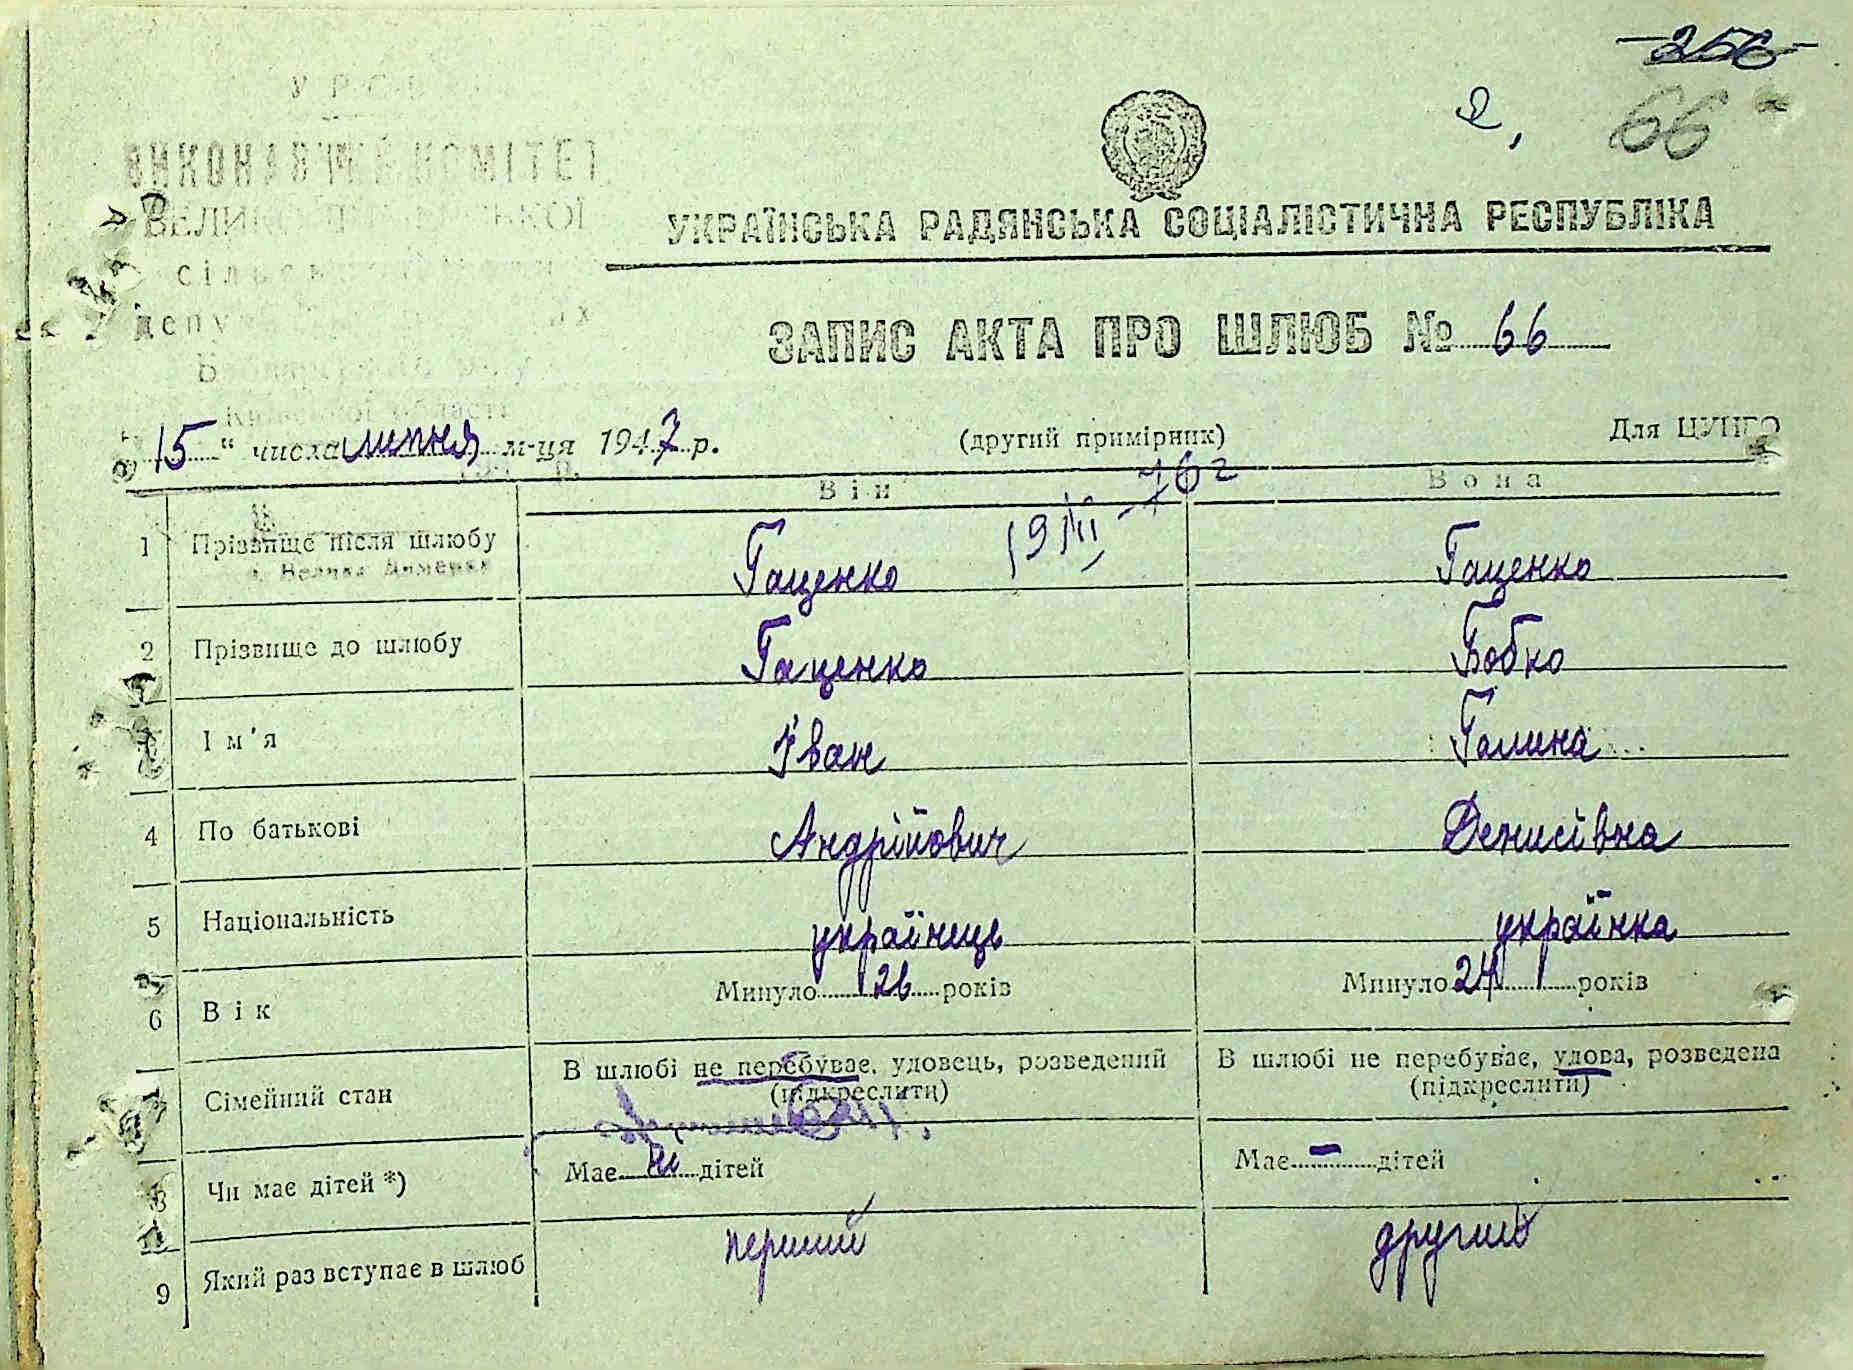 256
66
УРСР
ВИКОНАВЧИЙ КОМІТЕТ
УКРАЇНСЬКА РАДЯНСЬКА СОЦІАЛІСТИЧНА РЕСПУБЛІКА
ЗАПИС АКТА ПРО ШЛЮБ № 66
Київської області
15 " числа липня м-ця 1947 р.
(другий примірник)
Для ЦУНГО
Він
Вона
1 Прізвище після шлюбу Гаценко Гаценко
2 Прізвище до шлюбу Гаценко Бобко
Ім'я Іван Галина
4 По батькові Андрійович Денисівна
5 Національність українець українка
6 Вік Минуло 26 років Минуло 24 років
Сімейний стан В шлюбі не перебуває, удовець, розведений (підкреслити) В шлюбі не перебуває, удова, розведена (підкреслити)
8 Чи має дітей *) Має ні дітей Має - дітей
9 Який раз вступає в шлюб перший другий